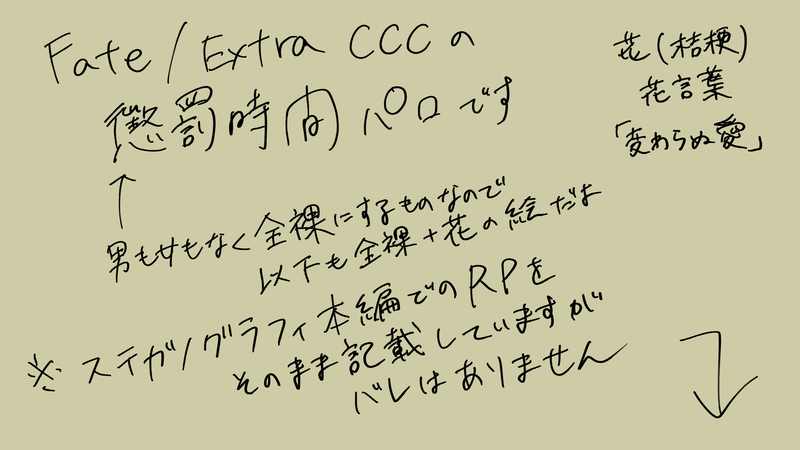 Fate/Extra CCCの
懲罰時間パロです
花(桔梗)
花言葉
「変わらぬ愛」
↑
男も女もなく全裸にするものなので
以下も全裸+花の絵だよ
※ステガノグラフィ本編でのRPを
そのまま記載していますが
バレはありません